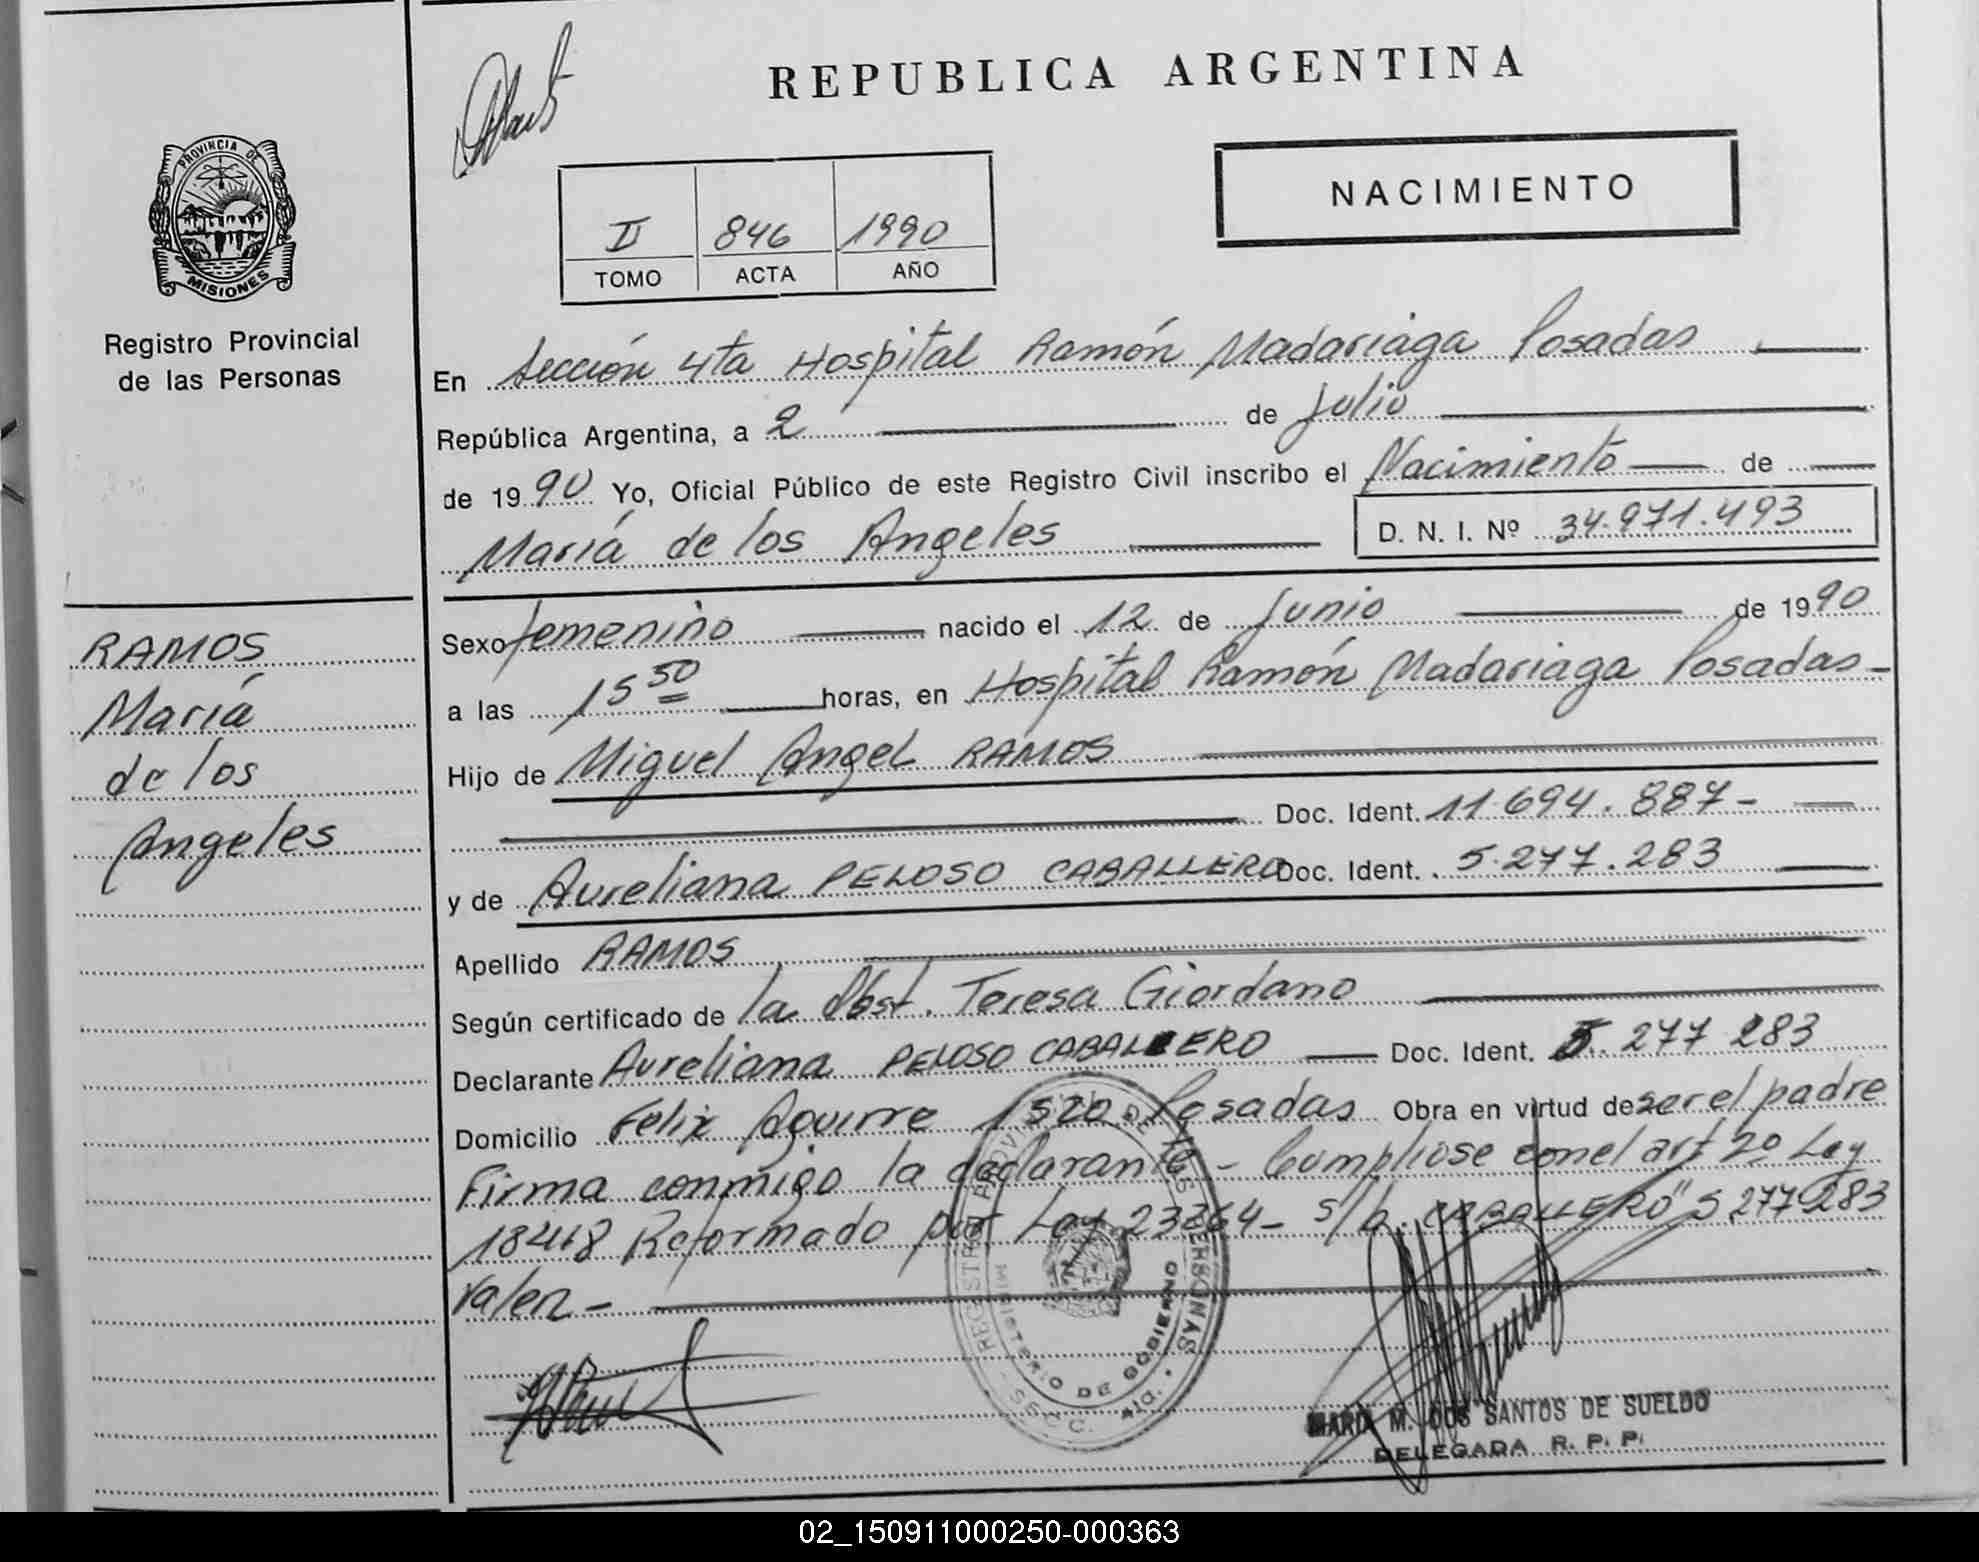 REPUBLICA ARGENTINA
PROVINCIA DE
MISIONES
Registro Provincial
de las Personas
NACIMIENTO
II 846 1990
TOMO ACTA AÑO
En Sección 4ta Hospital Ramón Madariaga Posadas
República Argentina, a 2 de Julio
de 1990 Yo, Oficial Público de este Registro Civil inscribo el Nacimiento de
María de los Angeles D. N. I. Nº 34.971.493
RAMOS
María
de los
Angeles
Sexo femenino nacido el 12 de Junio de 1990
a las 15 50 horas, en Hospital Ramón Madariaga Posadas-
Hijo de Miguel Angel RAMOS
Doc. Ident. 11.694.887-
y de Aureliana PELOSO CABALLERO Doc. Ident. 5.277.283
Apellido RAMOS
Según certificado de la Obst. Teresa Giordano
Declarante Aureliana PELOSO CABALLERO Doc. Ident. 5.277 283
Domicilio Felix Aguirre 1520 Posadas Obra en virtud de ser el padre
Firma conmigo la declarante - Cumpliose con el art 2º Ley
18448 Reformado por Ley 23264- s/b. "CABALLERO" 5 277 283
Valen-
REGISTRO PROV. DE LAS PERSONAS
MINISTERIO DE GOBIERNO
SECC. 4ta.
MARIA M. DOS SANTOS DE SUELDO
DELEGADA R. P. P.
02_150911000250-000363